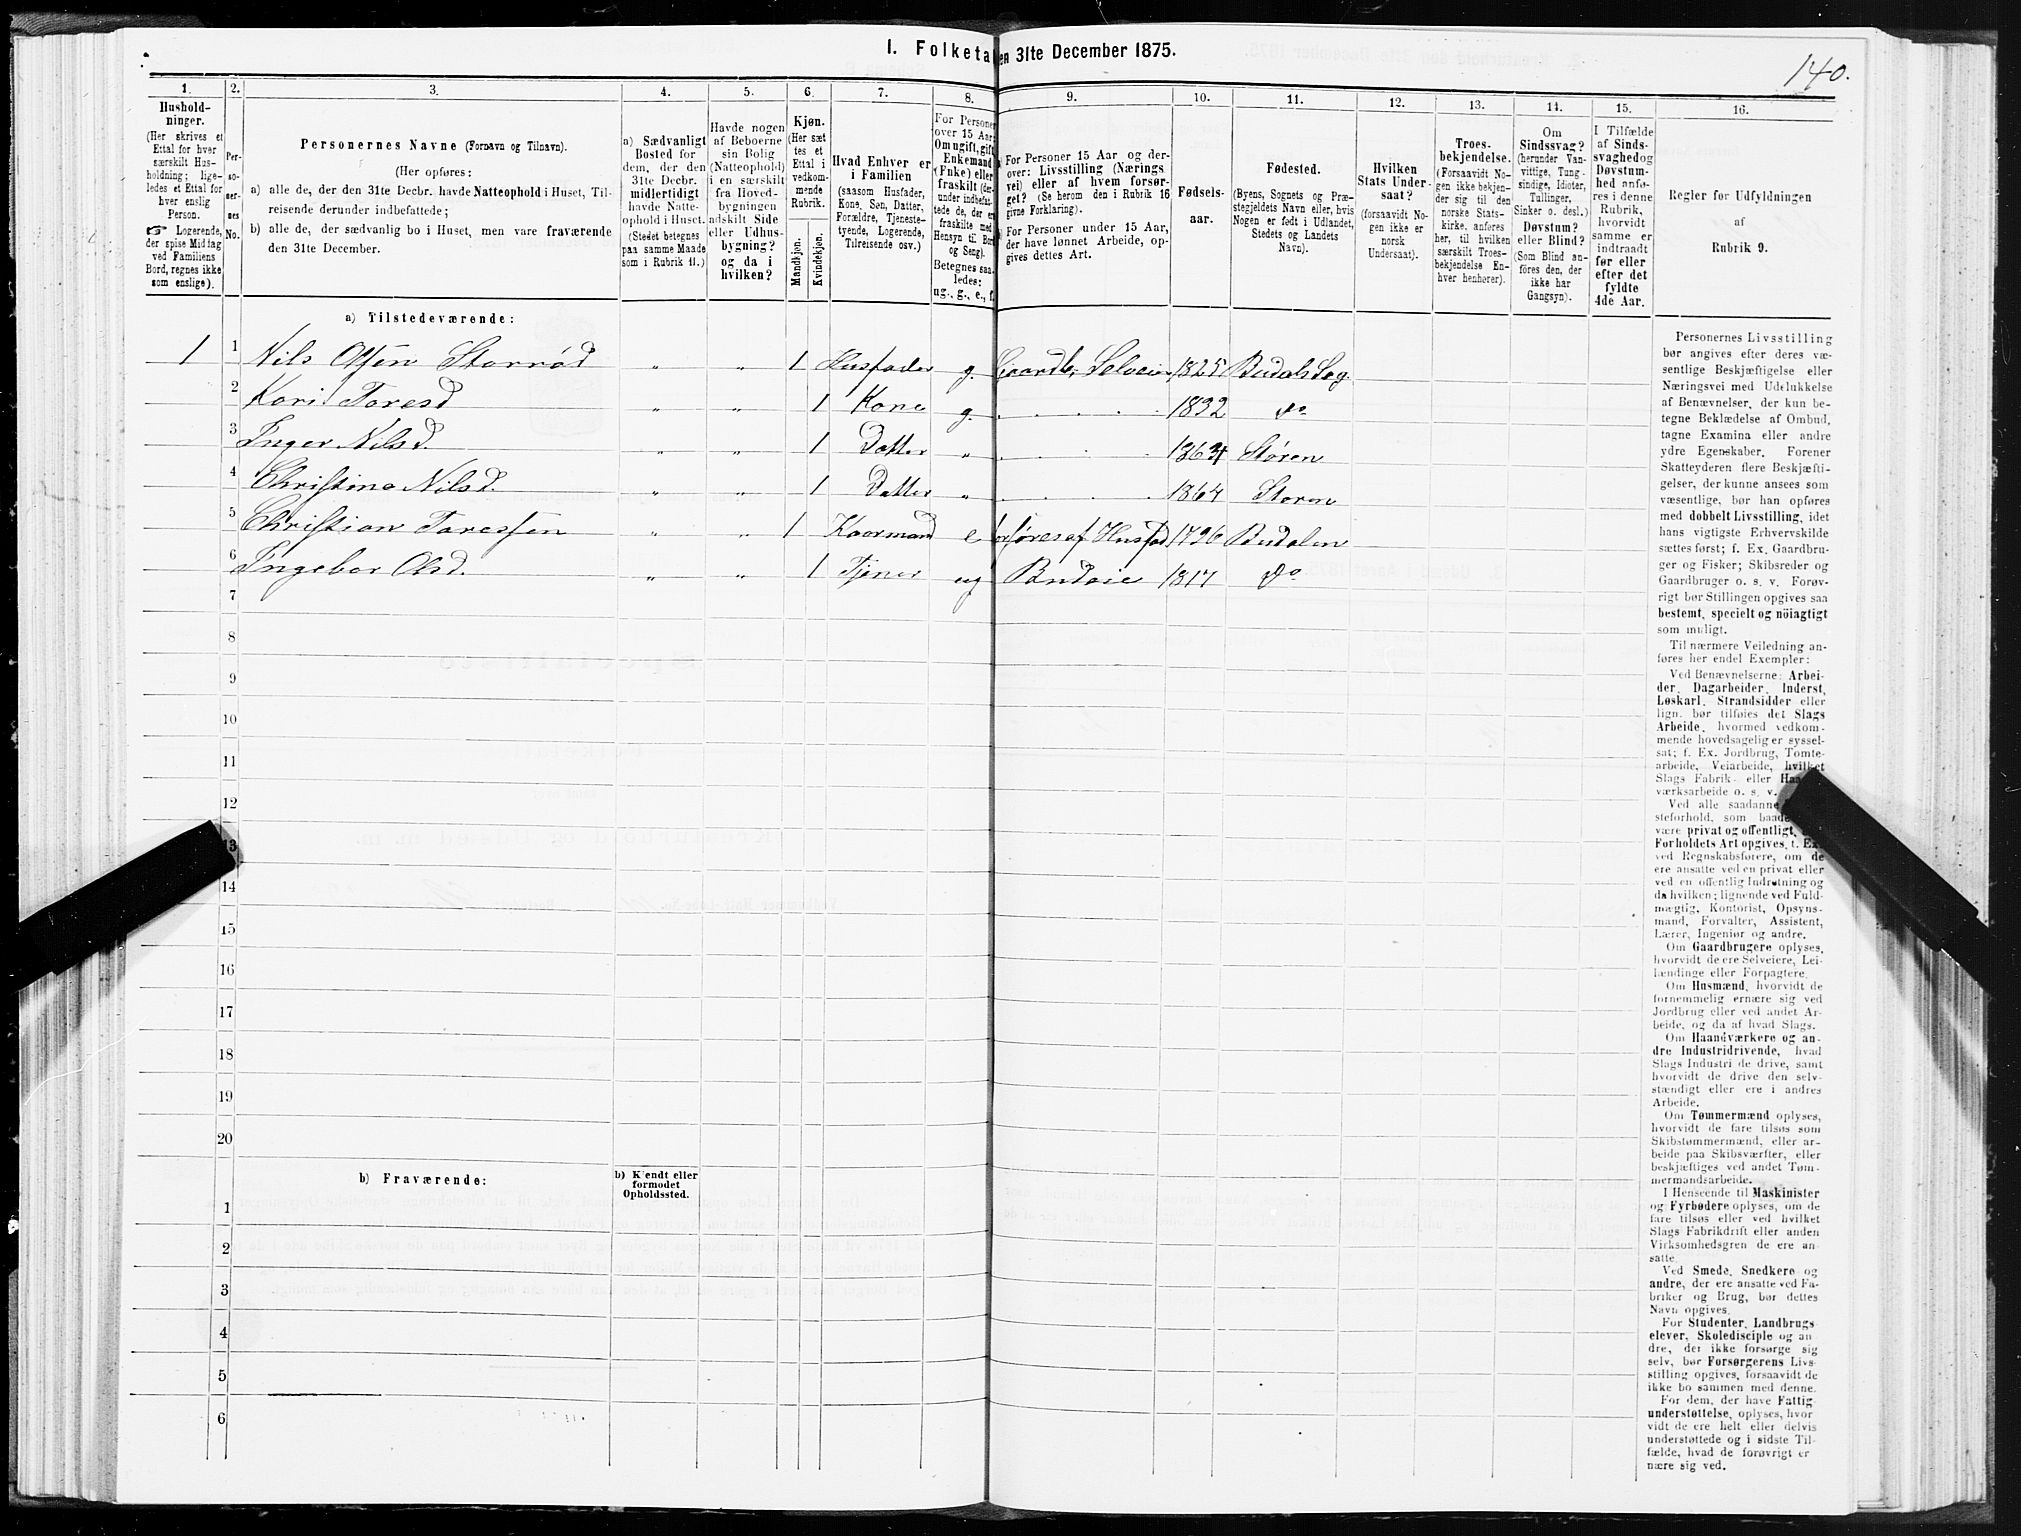 I. Folketa en 31te December 1875.
140.
1. 2. 3. 4. 5. 6. 7. 8. 9. 10. 11. 12. 13. 14. 15. 16.
Hushold-
ninger.
(Her skrives et
Ettal for hver
særskilt Hus-
holdning; lige-
ledes et Ettal for
hver enslig
Person.
☞ Logerende,
der spise Middag
ved Familiens
Bord, regnes ikke
som enslige).
Per-
so-
ner-
nes
No.
Personernes Navne (Fornavn og Tilnavn).
(Her opføres:
a) alle de, der den 31te Decbr. havde Natteophold i Huset, Til-
reisende derunder indbefattede;
b) alle de, der sædvanlig bo i Huset, men vare fraværende
den 31te December.
a) Sædvanligt
Bosted for
dem, der den
31te Decbr.
midlertidigt
havde Natte-
ophold i Huset.
(Stedet betegnes
paa samme Maade
som i Rubrik 11.)
Havde nogen
af Beboerne
sin Bolig
(Natteophold)
i en særskilt
fra Hoved-
bygningen
adskilt Side
eller Udhus-
bygning?
og da i
hvilken?
Kjøn.
(Her sæt
tes et
Ettal i
vedkom-
mende
Rubrik.
Mandkjøn.
Kvindekjøn.
Hvad Enhver er
i Familien
(saasom Husfader,
Kone, Søn, Datter,
Forældre, Tjeneste-
tyende, Logerende,
Tilreisende osv.)
For Personer
over 15 Aar:
Om ugift, gift,
Enkemand
(Enke) eller
fraskilt (der-
under indbefat-
tede de, der er
fraskilte med
Hensyn til Bord
og Seng).
Betegnes saa-
ledes:
ug., g., e., f.
For Personer 15 Aar og der-
over: Livsstilling (Nærings
vei) eller af hvem forsør-
get? (Se herom den i Rubrik 16
givne Forklaring).
For Personer under 15 Aar,
der have lønnet Arbeide, op-
gives dettes Art.
Fødsels-
aar.
Fødested.
(Byens, Sognets og Præ-
stegjeldets Navn eller, hvis
Nogen er født i Udlandet,
Stedets og Landets
Navn).
Hvilken
Stats Under-
saat?
(forsaavidt No-
gen ikke er
norsk
Undersaat).
Troes-
bekjendelse.
(Forsaavidt No-
gen ikke bekjen-
der sig til den
norske Stats-
kirke, anføres
her, til hvilken
særskilt Troes-
bekjendelse En-
hver henhører).
Om
Sindssvag?
(herunder Van-
vittige, Tung-
sindige, Idioter,
Tullinger,
Sinker o. desl.)
Døvstum?
eller Blind?
(Som Blind an-
føres den, der
ikke har
Gangsyn).
I Tilfælde
af Sinds-
svaghed og
Døvstum-
hed anfø-
res i denne
Rubrik,
hvorvidt
samme er
indtraadt
før eller
efter det
fyldte
4de Aar.
Regler for Udfyldningen
af
Rubrik 9.
a) Tilstedeværende:
1 1 Nils Olsen Storrød „ „ 1 Husfader g. Gaardb, Selveier 1825 Budals Sog
2 Kari Toresd „ „ 1 Kone g. 1832 do
3 Inger Nilsd. „ „ 1 Datter „ Støren
4 Christine Nilsd. „ „ 1 Datter „ 1864 Støren
5 Christian Toressen „ „ 1 Kaarmand e forsøres af Husfad 1796 Budalen
6 Ingebor Olsd. „ „ 1 Tjener ug Budeie 1817 do
7
8
9
10
11
12
13
14
15
16
17
18
19
20
b) Fraværende:
b) Kjendt eller
formodet
Opholdssted.
1
2
3
4
5
6
Personernes Livsstilling
bør angives efter deres væ-
sentlige Beskjæftigelse eller
Næringsvei med Udelukkelse
af Benævnelser, der kun be-
tegne Beklædelse af Ombud,
tagne Examina eller andre
ydre Egenskaber. Forener
Skatteyderen flere Beskjæfti-
gelser, der kunne ansees som
væsentlige, bør han opføres
med dobbelt Livsstilling, idet
hans vigtigste Erhvervskilde
sættes først; f. Ex. Gaardbru-
ger og Fisker; Skibsreder og
Gaardbruger o. s. v. Forøv-
rigt bør Stillingen opgives saa
bestemt, specielt og nöiagtigt
som muligt.
Til nærmere Veiledning an-
føres her endel Exempler:
Ved Benævnelserne: Arbei-
der, Dagarbeider, Inderst,
Løskarl, Strandsidder eller
lign. bør tilføies det Slags
Arbeide, hvormed vedkom-
mende hovedsagelig er syssel-
sat; f. Ex. Jordbrug, Tømte-
arbeide, Veiarbeide, hvilket
Slags Fabrik- eller Haa
værksarbeide o. s. v.
Ved alle saadanne
steforhold, som baade
være privat og offentligt,
Forholdets Art opgives, f. Ex
ved Regnskabsførere, om de
ere ansatte ved en privat eller
ved en offentlig Indretning og
da hvilken; lignende ved Fuld-
mægtig, Kontorist, Opsyns-
mand, Forvalter, Assistent,
Lærer, Ingeniør og andre.
Om Gaardbrugere oplyses,
hvorvidt de ere Selveiere, Lei-
lændinge eller Forpagtere.
Om Husmænd, hvorvidt de
fornemmelig ernære sig ved
Jordbrug eller ved andet Ar-
beide, og da af hvad Slags.
Om Haandværkere og an-
dre Industridrivende, hvad
Slags Industri de drive, samt
hvorvidt de drive den selv-
stændigt eller ere i andres
Arbeide.
Om Tømmermænd oplyses,
hvorvidt de fare tilsøs som
Skibstømmermænd, eller ar-
beide paa Skibsværfter, eller
beskjæftiges ved andet Tøm-
mermandsarbeide.
I Henseende til Maskinister
og Fyrbødere oplyses, om de
fare tilsøs eller ved hvilket
Slags Fabrikdrift eller anden
Virksomhedsgren de ere an-
satte.
Ved Smede, Snedkere og
andre, der ere ansatte ved Fa-
briker og Brug, bør dettes
Navn opgives.
For Studenter, Landbrugs-
elever, Skoledisciple og an-
dre, der ikke forsørge sig
selv, bør Forsørgerens Livs-
stilling opgives, forsaavidt de
ikke bo sammen med denne.
For dem, der have Fattig
understøttelse, oplyses, hvor
vidt de ere helt eller delvis
understøttede og i sidste Til-
fælde, hvad de forøvrigt er
nære sig ved.